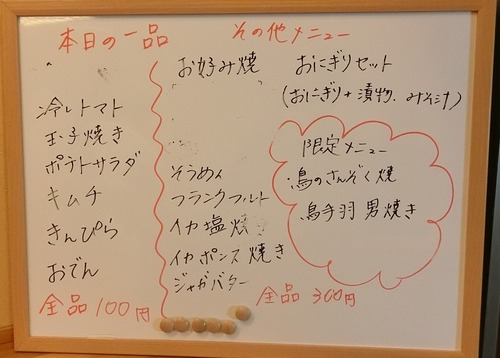 本日の一品
冷しトマト
玉子焼き
ポテトサラダ
キムチ
きんぴら
おでん
全品100円
その他メニュー
お好み焼
そうめん
フランクフルト
イカ塩焼き
イカポンス焼き
ジャガバター
おにぎりセット
(おにぎり+漬物、みそ汁)
限定メニュー
鳥のさんぞく焼
鳥手羽 男焼き
全品 300円